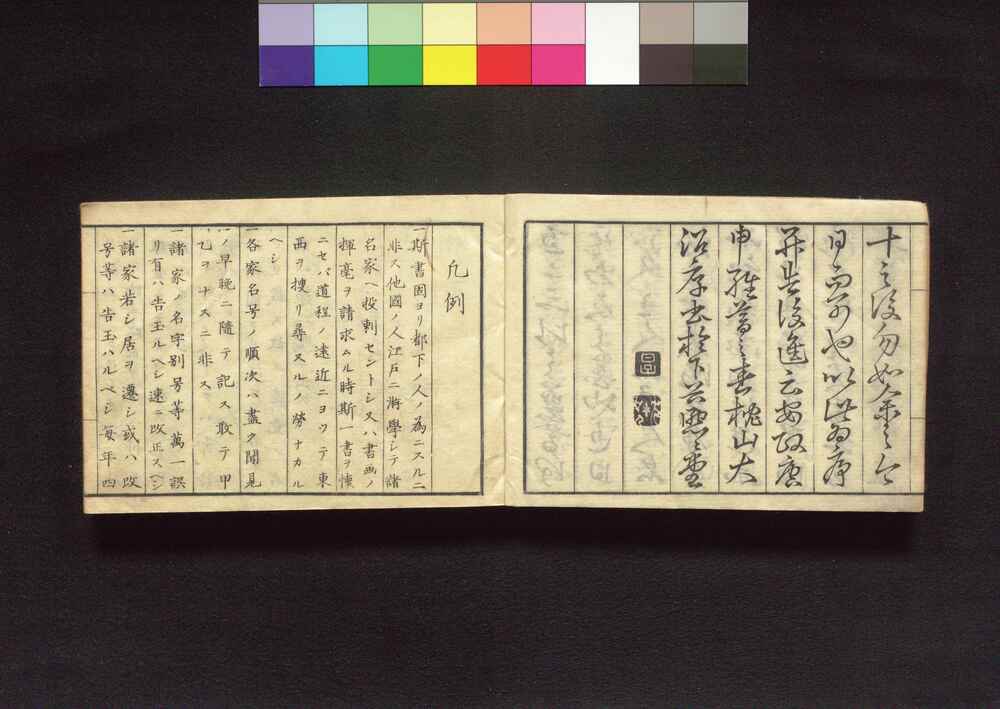 十之後勿如余之今
日而可也以此為序
并告後進云安政庚
申維暮之春枕山大
沼厚書於下谷
凡例
一斯書固ヨリ都下ノ人ノ為ニスルニ
非ス他國ノ人江戸ニ游學シテ諸
名家ヘ投刺セントシ又ハ書画ノ
揮毫ヲ請求ムル時斯一書ヲ懐
ニセバ道程ノ遠近ニヨツテ東
西ヲ捜リ尋スルノ勞ナカル
ヘシ
一各家名号ノ順次ハ盡ク聞見
ノ早晩ニ隨テ記ス敢テ甲
乙ヲナスニ非ス
一諸家ノ名字別号等萬一誤
リ有ハ告玉ルヘシ速ニ改正スヘシ
一諸家若シ居ヲ遷シ或ハ改
号等ハ告玉ハルベシ毎年四